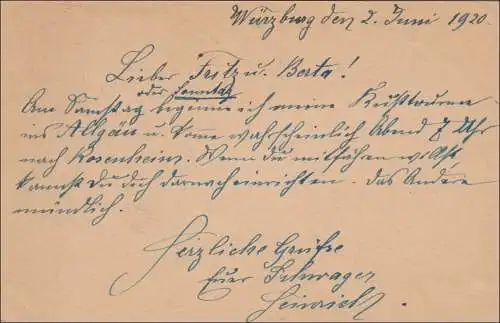 Würzburg den 2. Juni 1920.
Lieber Fritz u. Berta!
oder Sonntag
Am Samstag beginne ich meine
ins Allgäu u. kome wahrscheinlich Abend 7 Uhr
nach Rosenheim. Wenn du mitfahren willst,
kannst du dich darnach einrichten. Das Andere
mündlich.
Herzliche Grüße
Euer Schwager
Heinrich